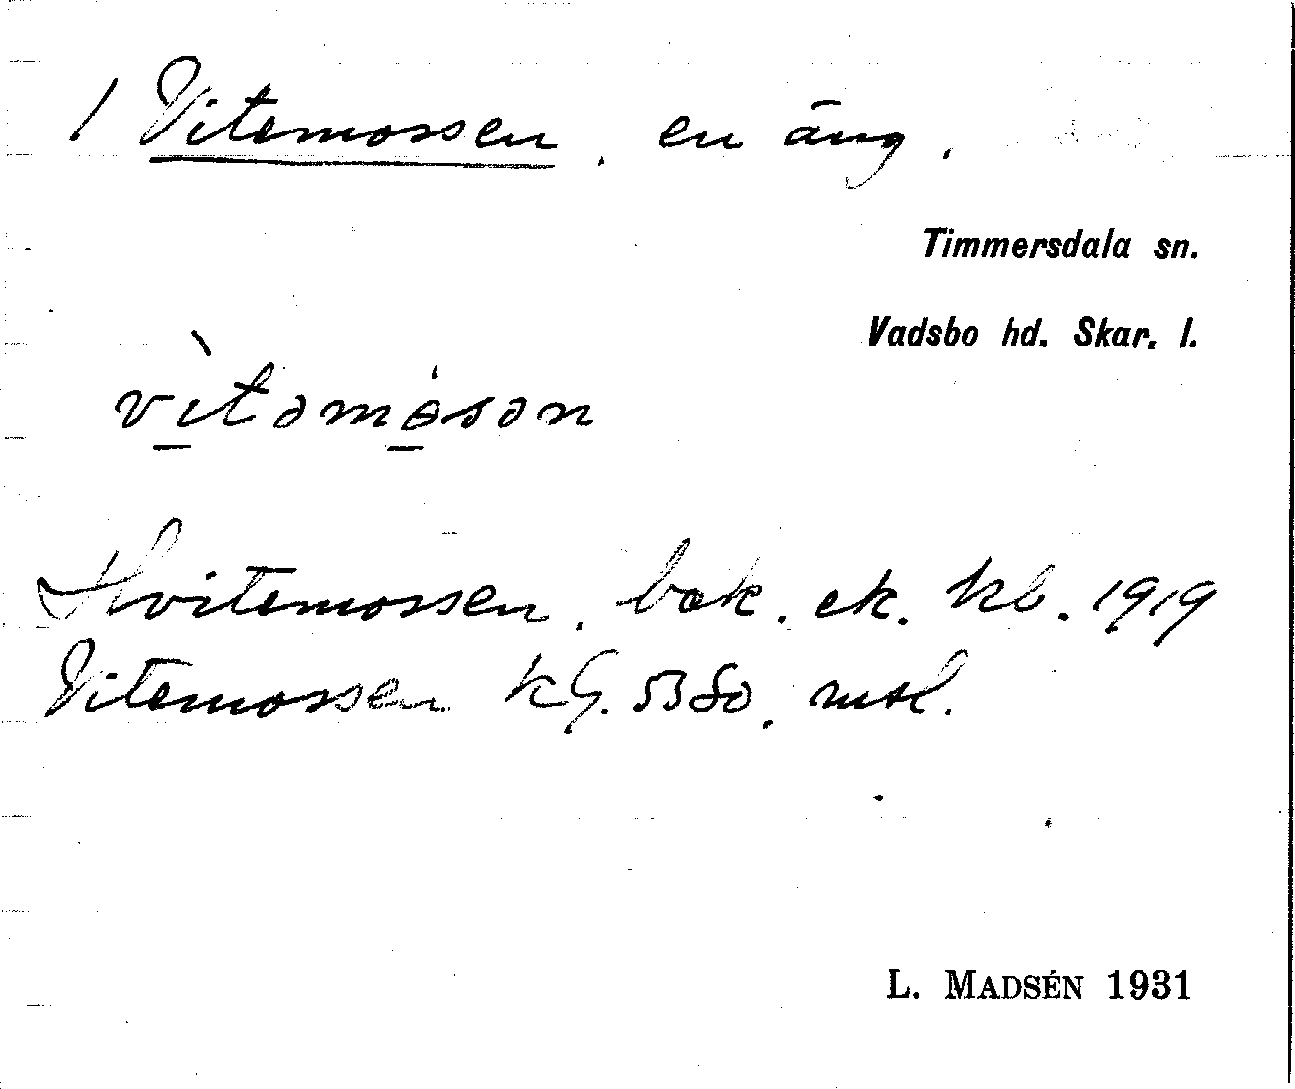 1 Vitemossen, en äng.
Timmersdala sn.
Vadsbo hd. Skar. l.
vìtəmɵ́sən
Hvitemossen, bok. ek. kb. 1919
Vitemossen kG. 5380, mtl.
L. MADSÉN 1931